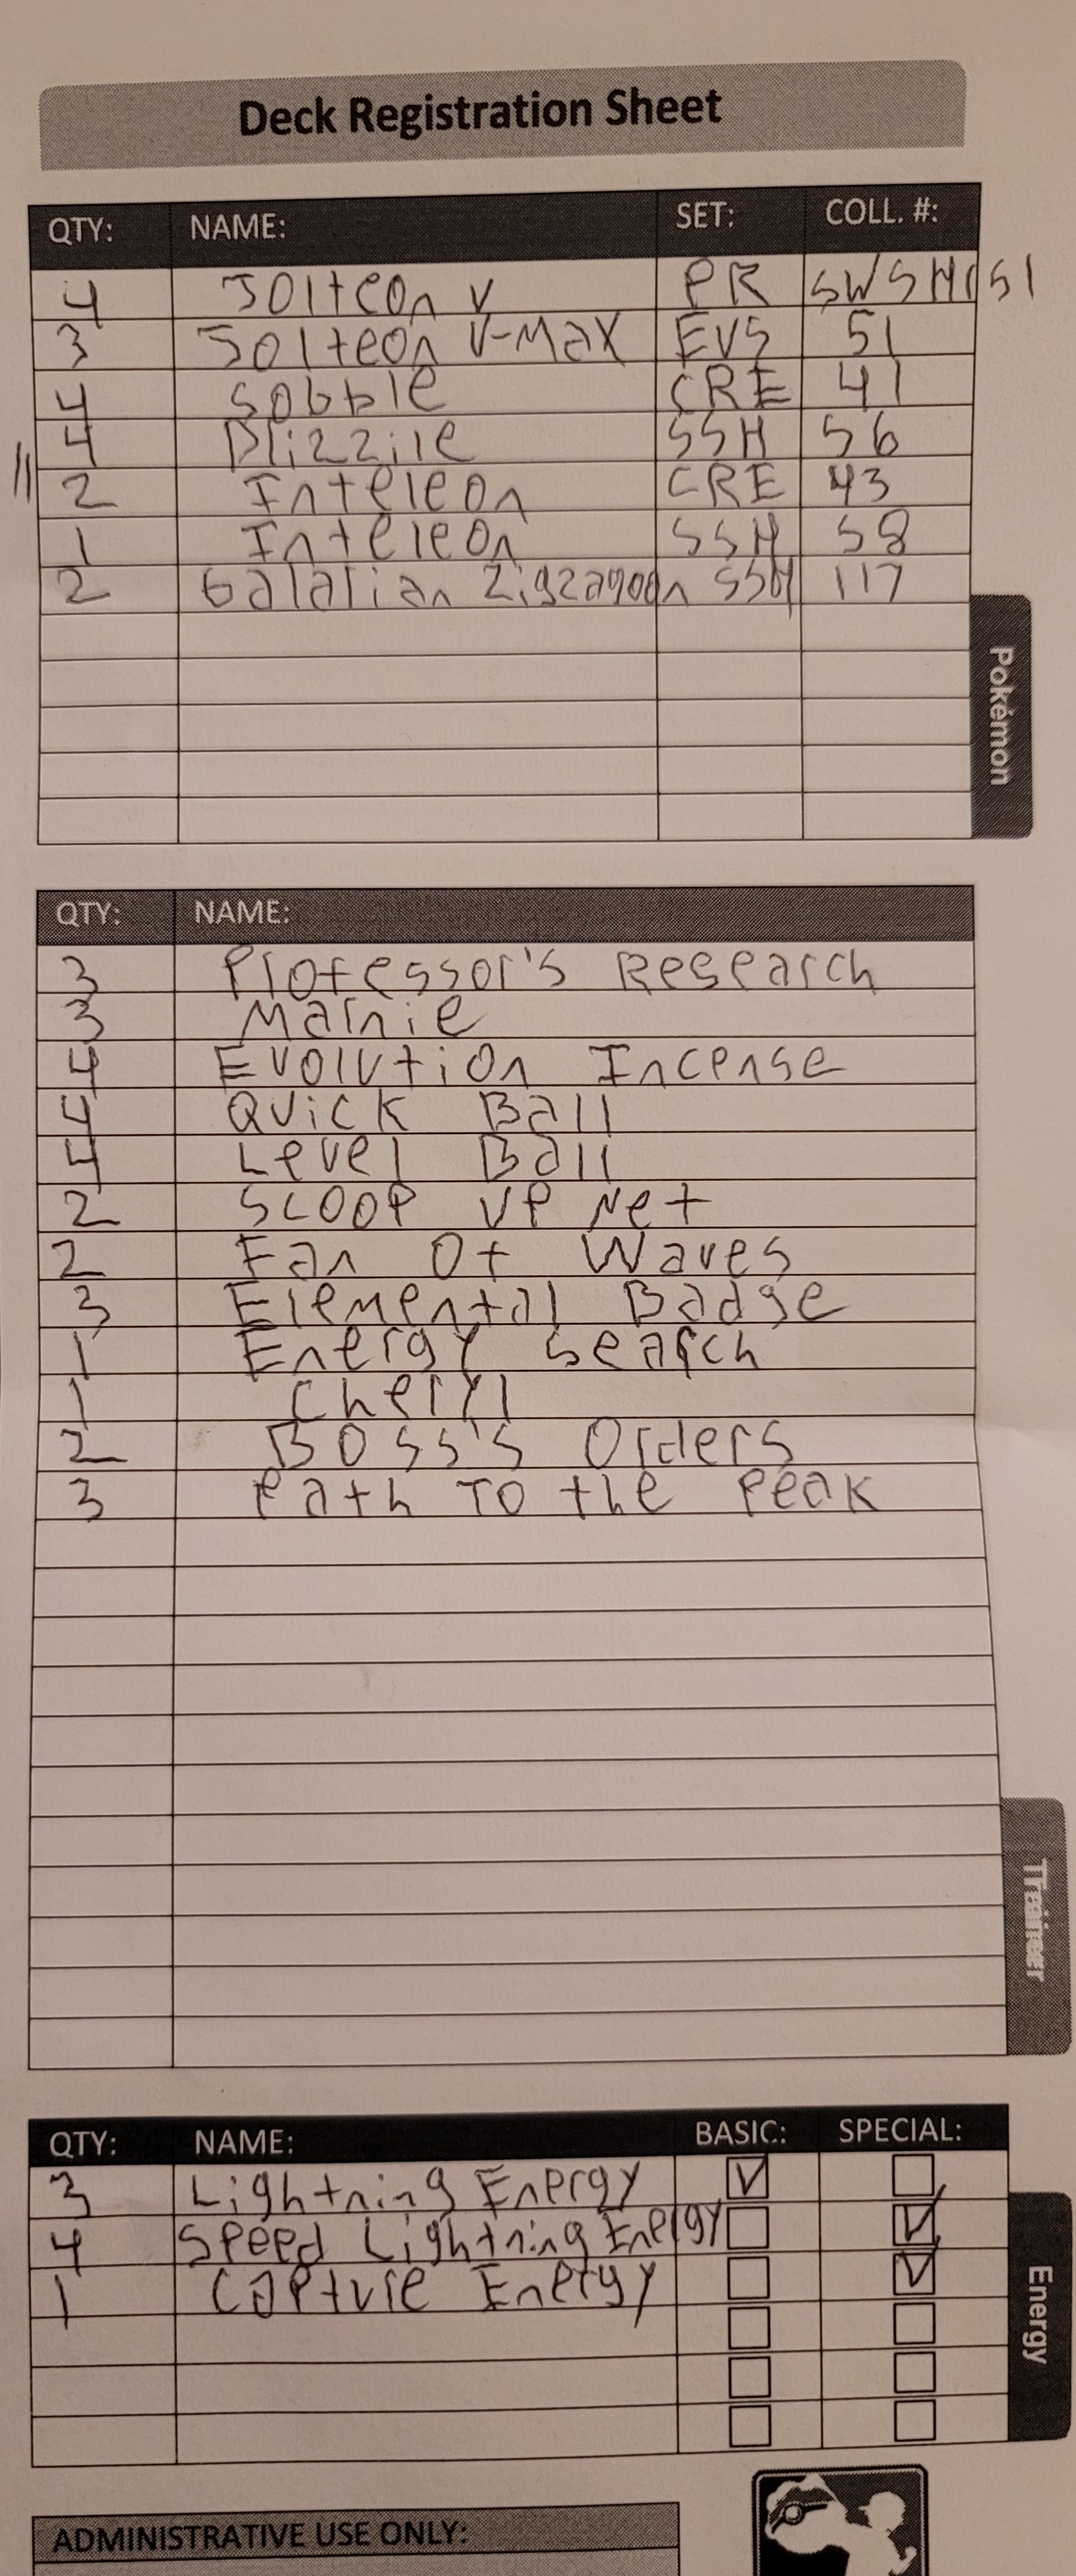 Deck Registration Sheet
QTY: NAME: SET: COLL. #:
4 Jolteon V PR SWSH151
3 Jolteon V-MaX EVS 51
4 Sobble CRE 41
4 Drizzile SSH 56
11
2 Inteleon CRE 43
1 Inteleon SSH 58
2 Galarian Zigzagoon SSH 117
Pokémon
QTY: NAME:
3 Professor's Research
3 Marnie
4 Evolution Incense
4 Quick Ball
4 Level Ball
2 Scoop Up Net
2 Fan Of Waves
3 Elemental Badge
1 Energy Search
1 Cheryl
2 Boss's Orders
3 Path To the Peak
Trainer
QTY: NAME: BASIC: SPECIAL:
3 Lightning Energy
4 Speed Lightning Energy
1 Capture Energy
Energy
ADMINISTRATIVE USE ONLY: